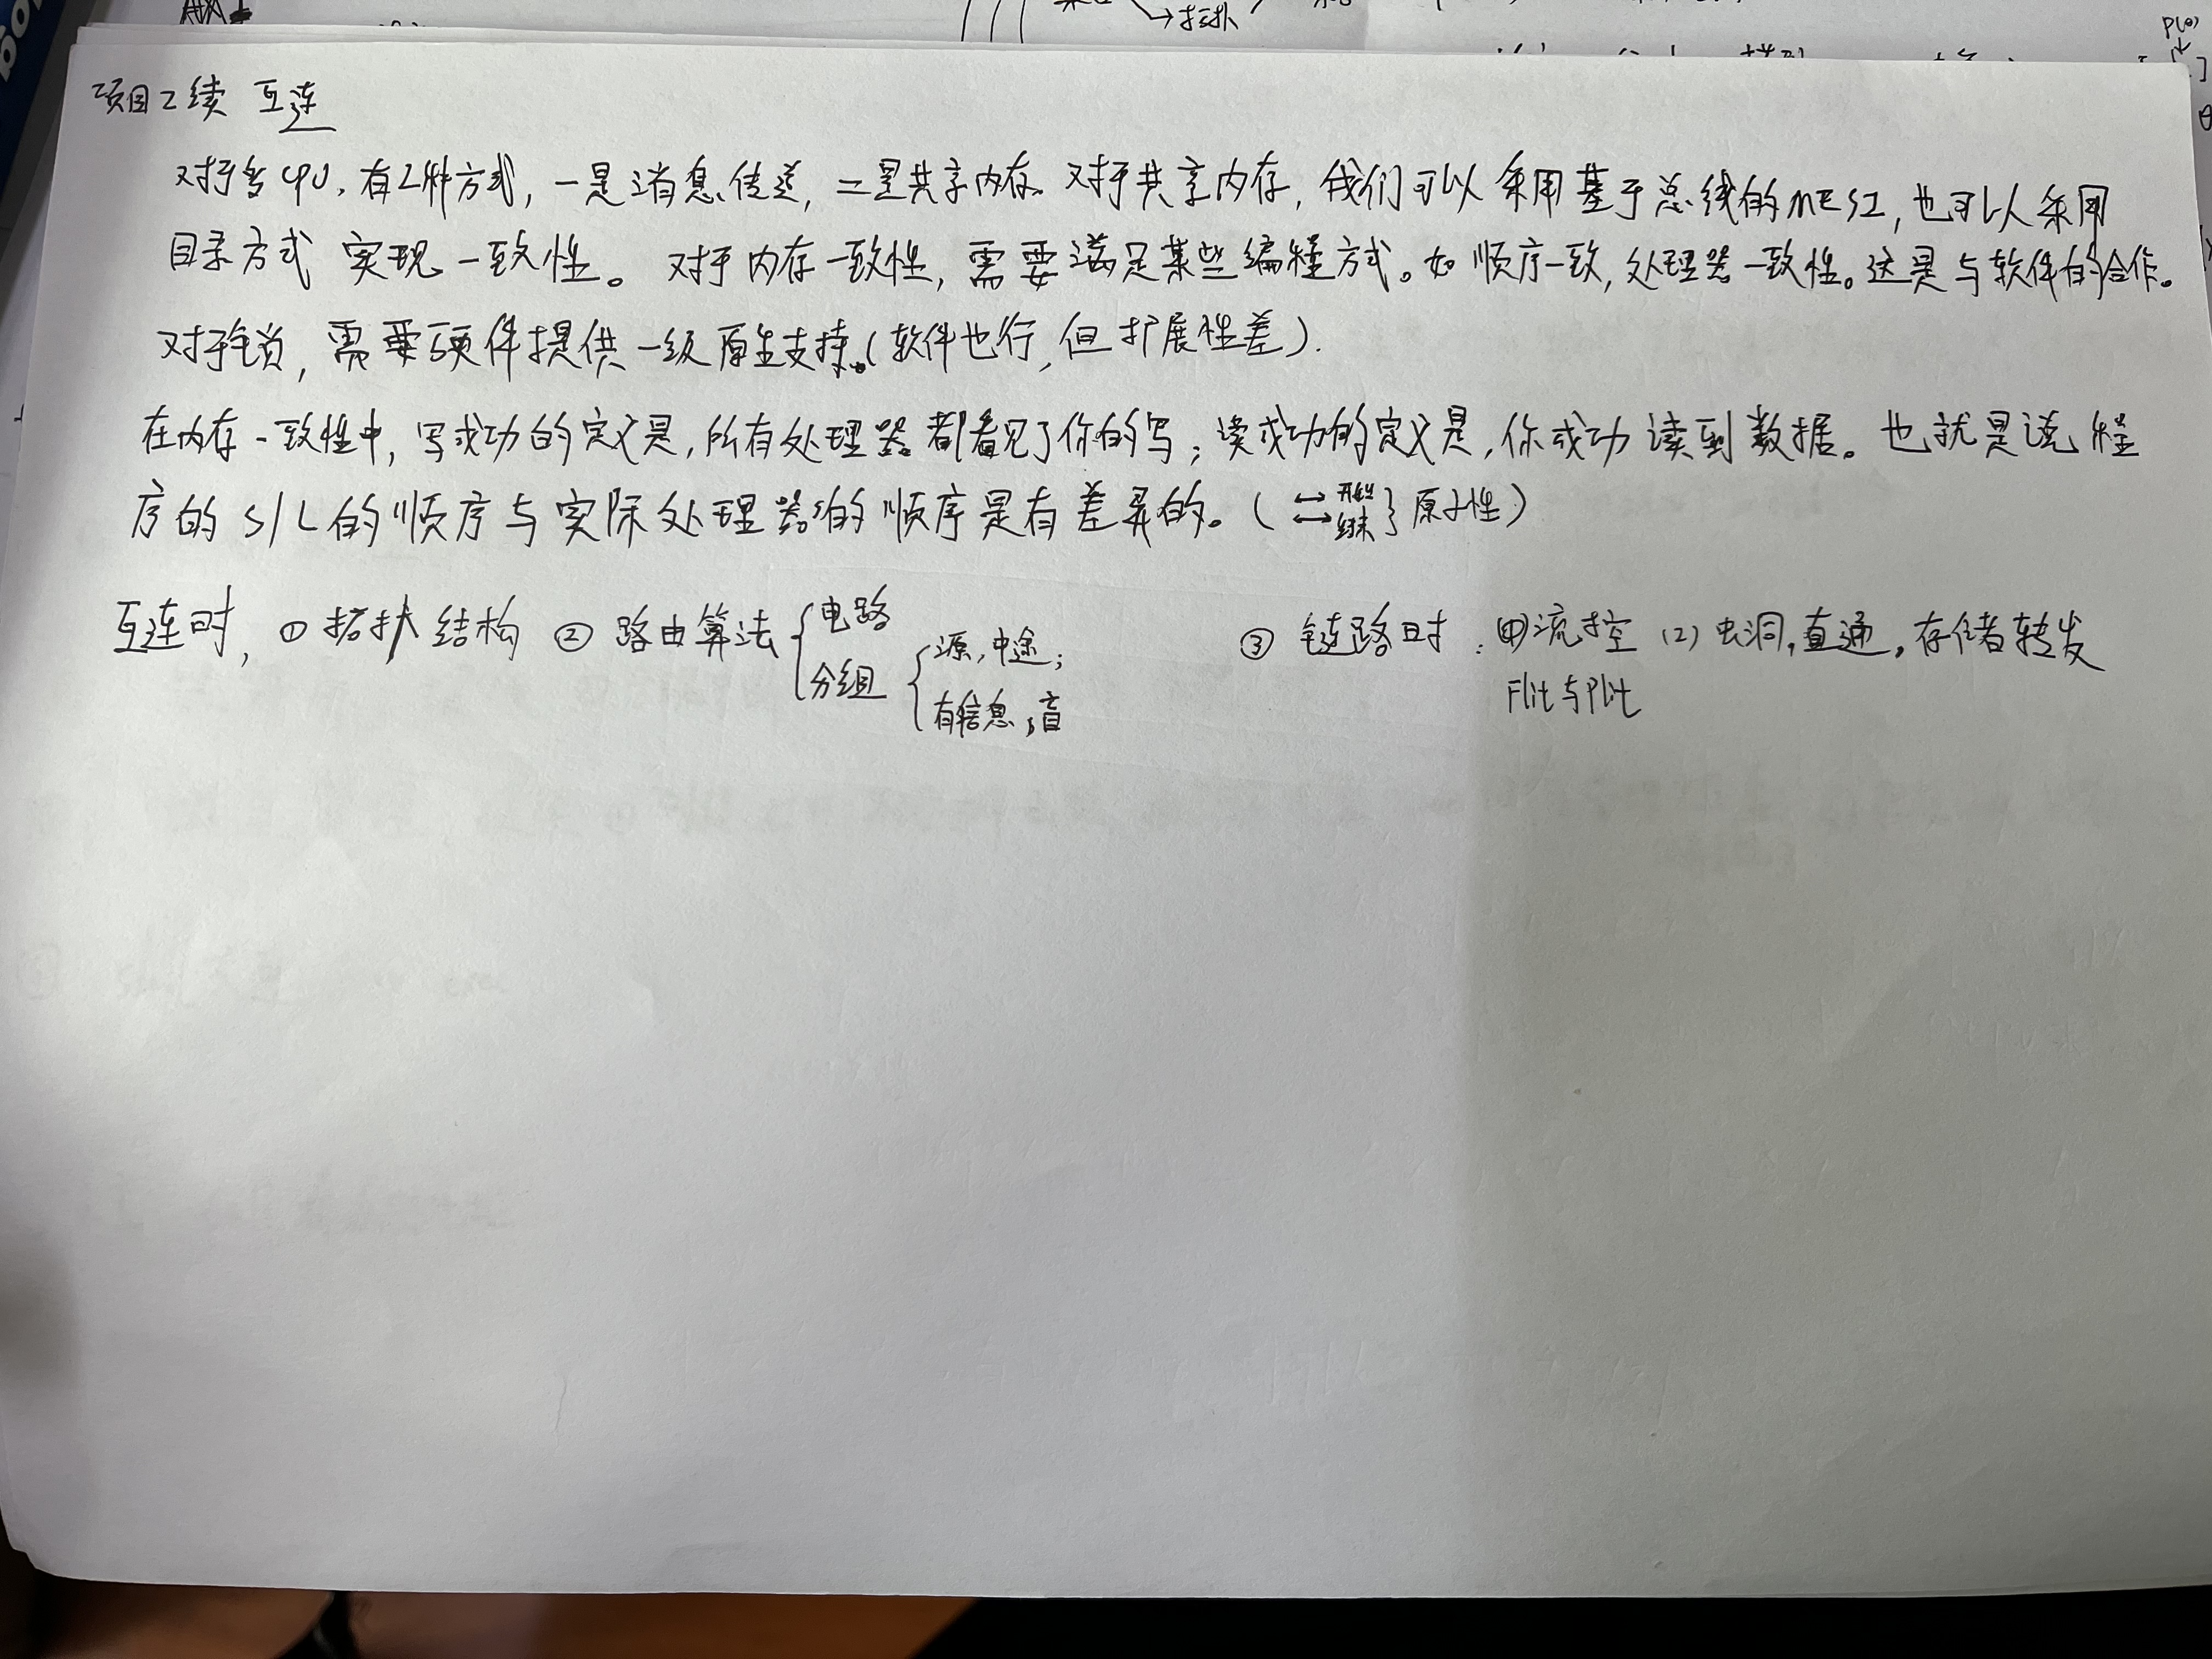 →拓扑
P(θ)
项目2续 互连
对于多CPU,有2种方式,一是消息传送,二是共享内存。对于共享内存,我们可以采用基于总线的MESI,也可以采用
目录方式 实现一致性。 对于内存一致性,需要满足某些编程方式。如 顺序一致,处理器一致性。这是与软件的合作。
对于锁,需要硬件提供一级原生支持。(软件也行,但扩展性差).
在内存一致性中,写成功的定义是,所有处理器都看见了你的写;读成功的定义是,你成功读到数据。也就是说 程
序的 S/L 的顺序与实际处理器的顺序是有差异的。( ↔ 开始 ↔ 结束 } 原子性)
互连时, ① 拓扑结构 ② 路由算法 { 电路 分组 { 源,中途; 有信息,盲 ③ 链路时: (1)流控 (2) 虫洞,直通,存储转发
Flit与Phit